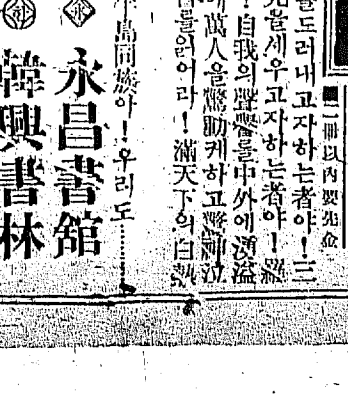 ■二冊以內要先金
드러내고자하는者야！三
을세우고자하는者야！羅
！自我의聲譽를中外에湧溢
萬人을驚動케하고 泣
를읽어라！滿天下의白熱
半島同族아！우리도………
永昌書館
韓興書林